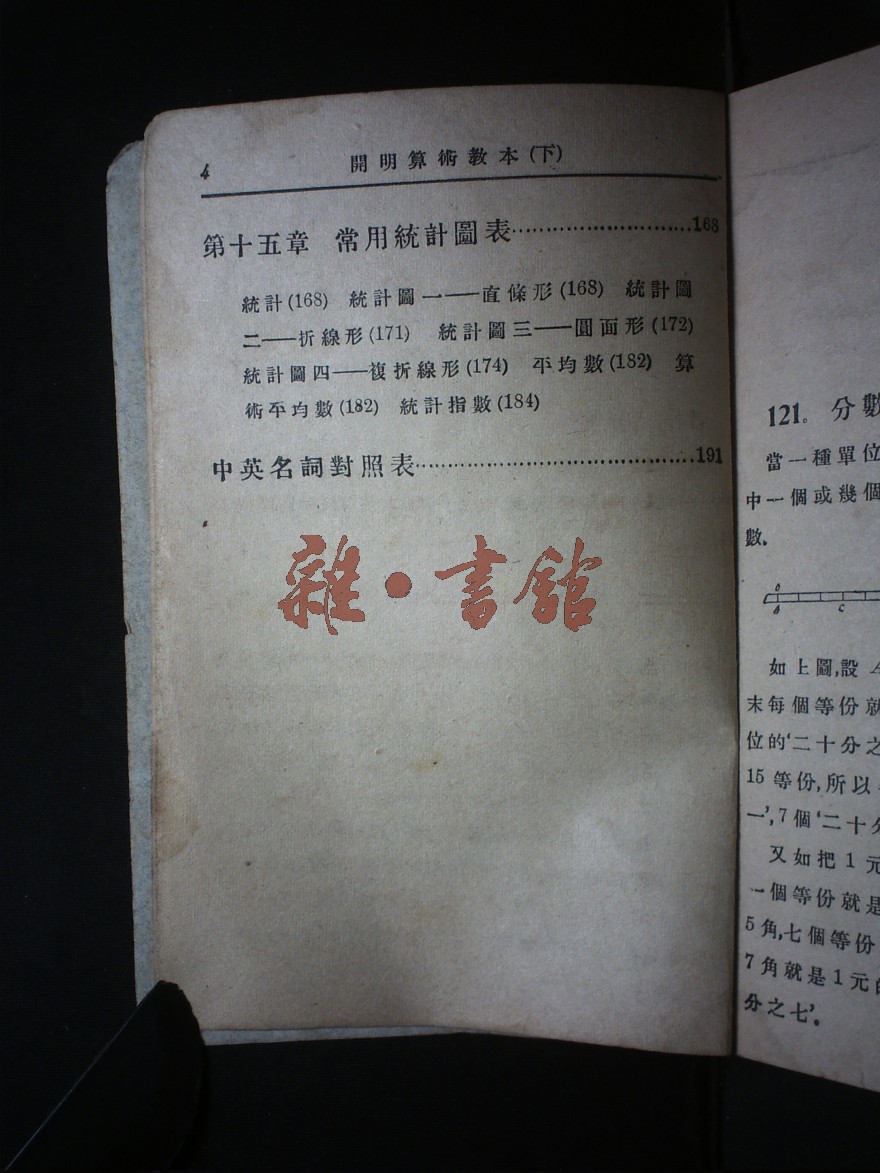 4 開明算術教本(下)
第十五章 常用統計圖表……………………168
統計(168) 統計圖一——直條形(168) 統計圖
二——折線形(171) 統計圖三——圓面形(172)
統計圖四——複折線形(174) 平均數(182) 算
術平均數(182) 統計指數(184)
中英名詞對照表………………………………191
雜·書館
121. 分數
當一種單位
中一個或幾個
數.
C
如上圖,設 A
末每個等份就
位的‘二十分之
15 等份,所以
一’,7個‘二十分
又如把 1 元
一個等份就是
5角,七個等份
7角就是1元的
分之七’.